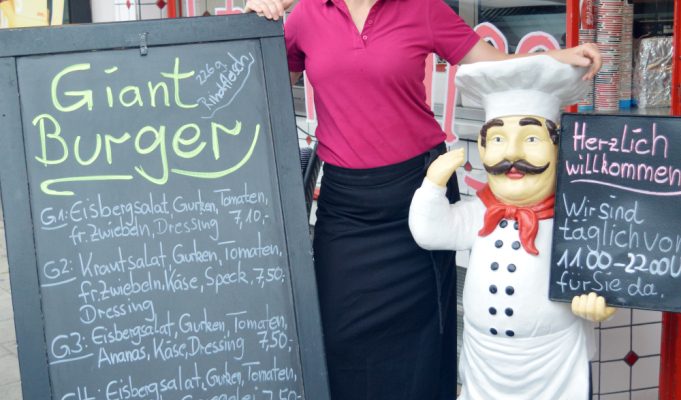 Giant
226 g
Rindfleisch
Burger
G1: Eisbergsalat, Gurken, Tomaten,
fr. Zwiebeln, Dressing 7,10,-
G2: Krautsalat, Gurken, Tomaten,
fr. Zwiebeln, Käse, Speck, 7,50,-
Dressing
G3: Eisbergsalat, Gurken, Tomaten,
Ananas, Käse, Dressing 7,50,-
G4: Eisbergsalat,
Gurken, Tomaten,
Herzlich
willkommen
Wir sind
täglich von
11°°-22°°U
für Sie da.